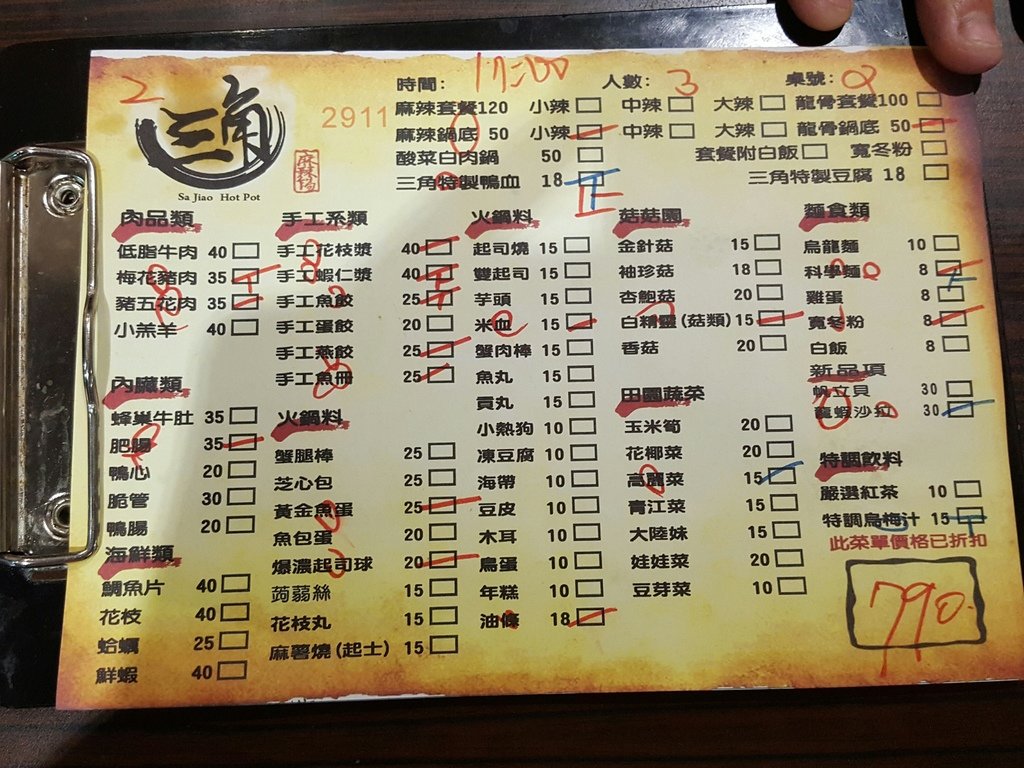 2
三角
麻辣鍋
Sa Jiao Hot Pot
2911
時間: 17:00 人數: 3 桌號:
麻辣套餐120 小辣 中辣 大辣 龍骨套餐100
麻辣鍋底 50 小辣 中辣 大辣 龍骨鍋底 50
酸菜白肉鍋 50 套餐附白飯 寬冬粉
三角特製鴨血 18 正 三角特製豆腐 18
肉品類
低脂牛肉 40
梅花豬肉 35
豬五花肉 35
小羔羊 40
內臟類
蜂巢牛肚 35
肥腸 35
鴨心 20
脆管 30
鴨腸 20
海鮮類
鯛魚片 40
花枝 40
蛤蠣 25
鮮蝦 40
手工系類
手工花枝漿 40
手工蝦仁漿 40
手工魚餃 25
手工蛋餃 20
手工燕餃 25
手工魚冊 25
火鍋料
蟹腿棒 25
芝心包 25
黃金魚蛋 25
魚包蛋 20
爆濃起司球 20
蒟蒻絲 15
花枝丸 15
麻薯燒(起士) 15
火鍋料
起司燒 15
雙起司 15
芋頭 15
米血 15
蟹肉棒 15
魚丸 15
貢丸 15
小熱狗 10
凍豆腐 10
海帶 10
豆皮 10
木耳 10
鳥蛋 10
年糕 10
油條 18
菇菇園
金針菇 15
袖珍菇 18
杏鮑菇 20
白精靈(菇類) 15
香菇 20
田園蔬菜
玉米筍 20
花椰菜 20
高麗菜 15
青江菜 15
大陸妹 15
娃娃菜 20
豆芽菜 10
麵食類
烏龍麵 10
科學麵 8
雞蛋 8
寬冬粉 8
白飯 8
新品項
帆立貝 30
龍蝦沙拉 30
特調飲料
嚴選紅茶 10
特調烏梅汁 15
此菜單價格已折扣
790